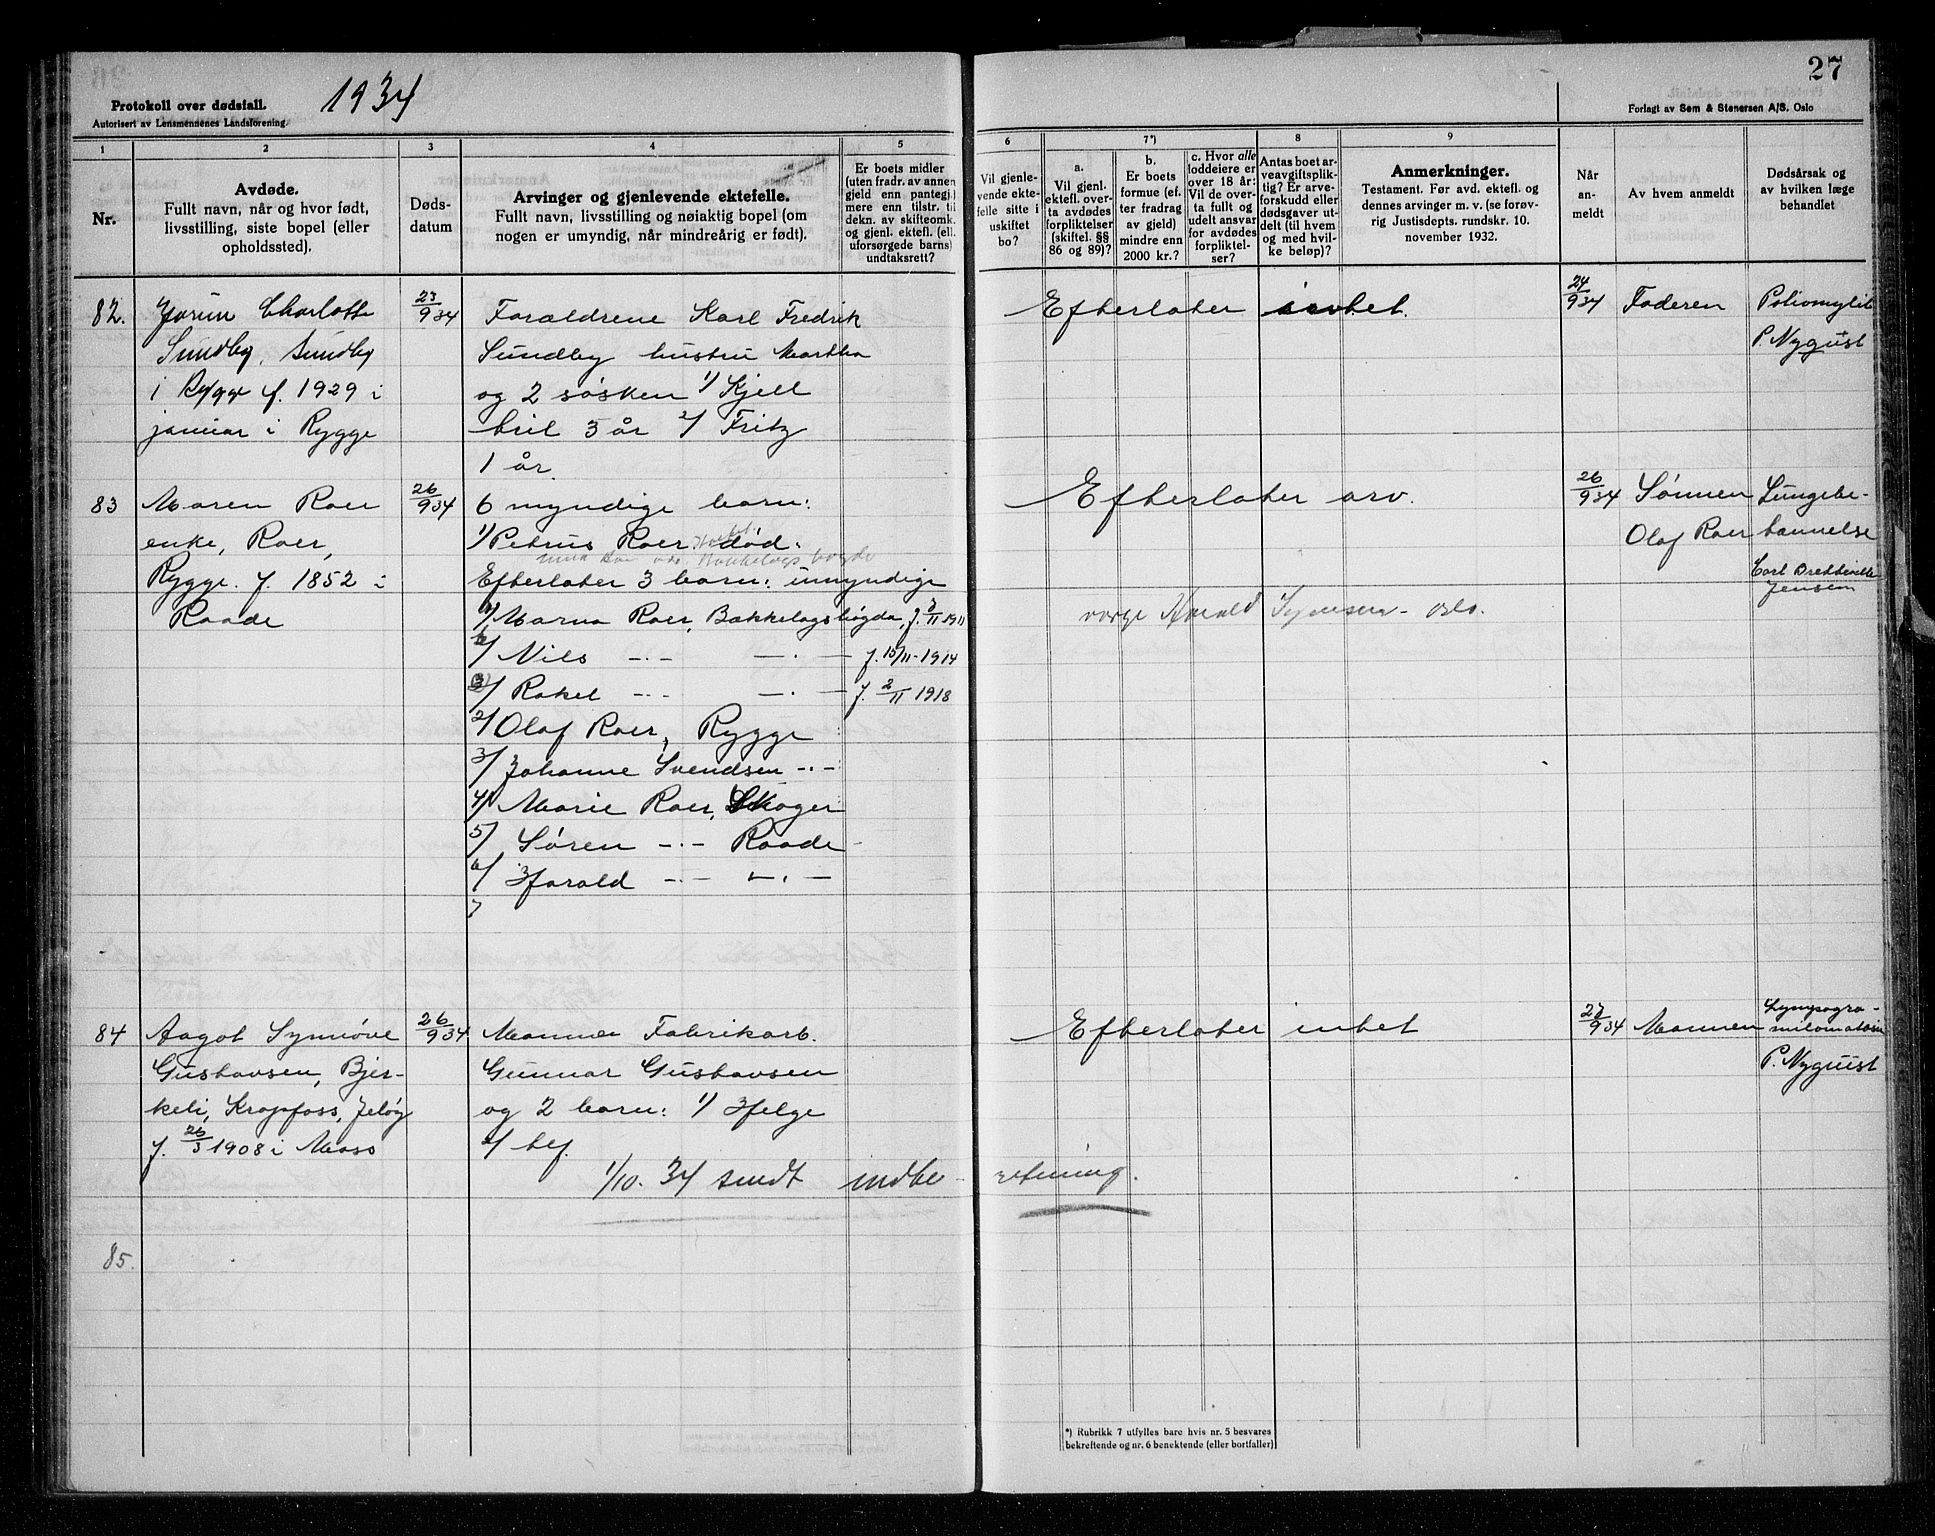 27
Protokoll over dødsfall.
Autorisert av Lensmennenes Landsforening.
1934
Forlagt av Sem & Stenersen A/S. Oslo
1
2
3
4
5
6
7*)
8
9
Nr.
Avdøde.
Fullt navn, når og hvor født,
livsstilling, siste bopel (eller
opholdssted).
Døds-
datum
Arvinger og gjenlevende ektefelle.
Fullt navn, livsstilling og nøiaktig bopel (om
nogen er umyndig, når mindreårig er født).
Er boets midler
(uten fradr. av annen
gjeld enn pantegj.)
mere enn tilstr. til
dekn. av skifteomk.
og gjenl. ektefl. (ell.
uforsørgede barns)
undtaksrett?
Vil gjenle-
vende ekte-
felle sitte i
uskiftet
bo?
a.
Vil gjenl.
ektefl. over-
ta avdødes
forpliktelser
(skiftel. §§
86 og 89)?
b.
Er boets
formue (ef-
ter fradrag
av gjeld)
mindre enn
2000 kr.?
c. Hvor alle
loddeiere er
over 18 år:
Vil de over-
ta fullt og
udelt ansvar
for avdødes
forpliktel-
ser?
Antas boet ar-
veavgiftsplik-
tig? Er arve-
forskudd eller
dødsgaver ut-
delt (til hvem
og med hvil-
ke beløp)?
Anmerkninger.
Testament. Før avd. ektefl. og
dennes arvinger m. v. (se forøv-
rig Justisdepts. rundskr. 10.
november 1932.
Når
an-
meldt
Av hvem anmeldt
Dødsårsak og
av hvilken læge
behandlet
82.
Jorun Charlotte
Sundby, Sundby
i Rygge f. 1929 i
januar i Rygge
23/9 34
Foraldrene Karl Fredrik
Sundby hustru Martha
og 2 søsken 1/ Kjell
Emil 3 år 2/ Fritz
1 år
Efterlater intet.
24/9 34
Faderen
Poliomylit
P. Nyquist
83
Maren Roer
enke, Roer,
Rygge. f. 1852 i
Raade
26/9 34
6 myndige barn:
1/ Petrus Roer død.
Efterlater 3 barn: umyndige
1/ Marna Roer, Bakkelagshøgda, f. 3/11 1911
2/ Nils -·- -·- f. 15/11-1914
3/ Rakel -·- -·- f. 2/11 1918
2/ Olaf Roer, Rygge
3/ Johanne Svendsen -·-
4/ Marie Roer, Skoger
5/ Søren -·- Raade
6/ Harald -·- -·-
7
Efterlater arv.
verge Harald Oslo.
26/9 34
Sønnen
Olaf Roer
Lungebe-
tennelse
Carl Bretteville
Jensen
84
Aagot Synnøve
Gustavsen, Bjer-
keli, Kropfoss, Jeløy
f. 26/3 1908 i Moss
26/9 34
Mannen Fabrikarb.
Gunnar Gustavsen
og 2 barn: 1/ Helge
2/ Leif.
Efterlater intet
27/9 34
Mannen
Lympogra-
nulomatose
P. Nyquist
1/10. 34 sendt indbe-retning.
85.
*) Rubrikk 7 utfylles bare hvis nr. 5 besvares
bekreftende og nr. 6 benektende (eller bortfaller)